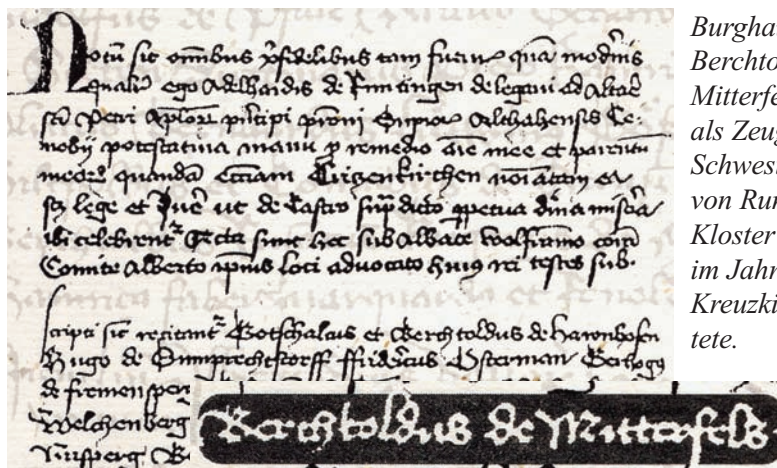 Notū sit omībus xp̄ifidelibus tam futur quā modn̄is
qualit ego Adelhaidis de Runtingen delegavi ad Altare
scī Petri Aplor principi pr̄oni Superior Althahensis Ce-
nobij potestativa manu p remedio aīe mee et parentū
meor quandā Ecc̄iam noīatam ea
lege et Jure ut de Castro supdicto ppetua
ibi celebrent Acta sunt hec sub Abbate Wolframo corā
Comite Alberto ipsius loci advocato huius rei testes sub-
scripti sic recitant Gotschalcus et Berchtoldus de Hawnhofen
Hugo de ffridericus Osterman
de firmensper
Welchenberg
Be
Berchtoldus de Mitterfels
Burgha
Berchto
Mitterfe
als Zeug
Schwest
von Run
Kloster
im Jahr
Kreuzki
tete.